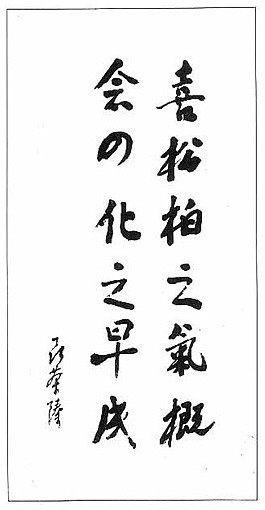 喜松柏之氣概
会四化之早成